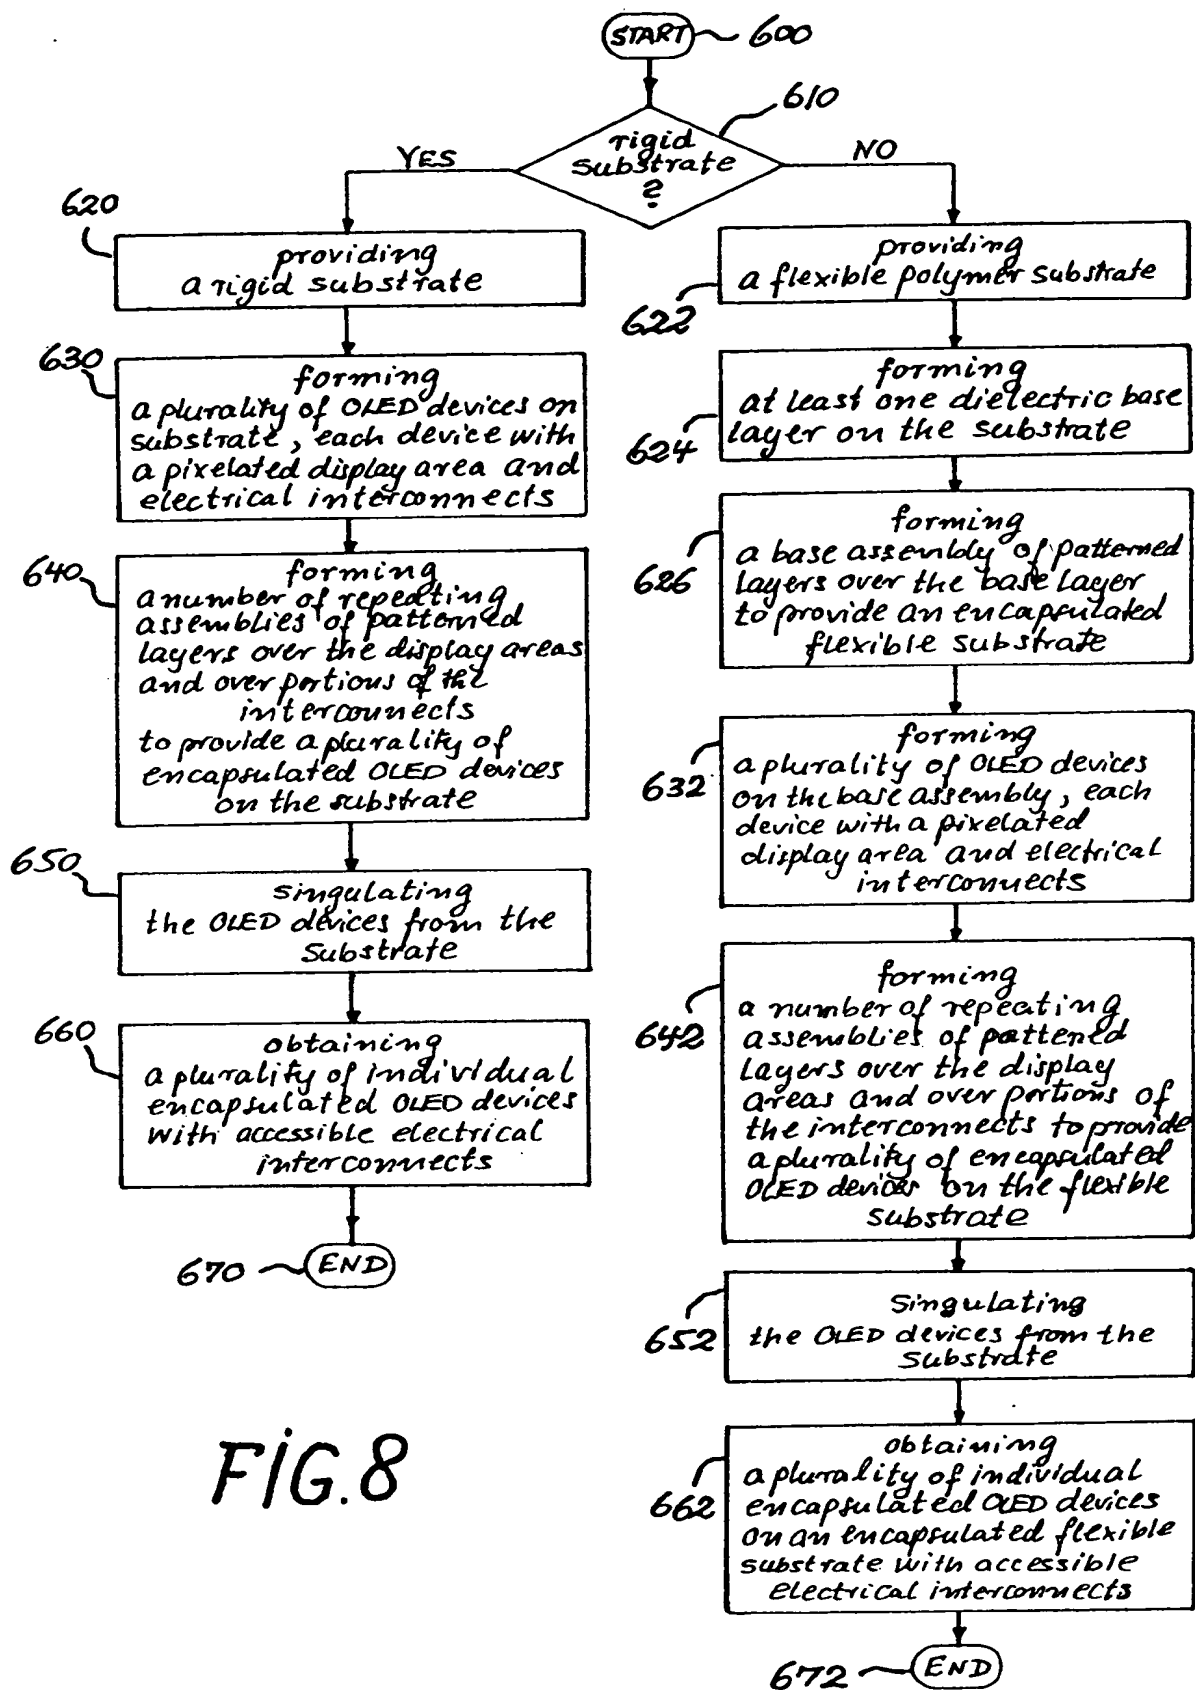 START
600
610
rigid
substrate
?
YES
NO
620
providing
a rigid substrate
630
forming
a plurality of OLED devices on
substrate, each device with
a pixelated display area and
electrical interconnects
640
forming
a number of repeating
assemblies of patterned
layers over the display areas
and over portions of the
interconnects
to provide a plurality of
encapsulated OLED devices
on the substrate
650
singulating
the OLED devices from the
substrate
660
obtaining
a plurality of individual
encapsulated OLED devices
with accessible electrical
interconnects
670
END
providing
a flexible polymer substrate
622
forming
at least one dielectric base
layer on the substrate
624
forming
a base assembly of patterned
layers over the base layer
to provide an encapsulated
flexible substrate
626
forming
a plurality of OLED devices
on the base assembly, each
device with a pixelated
display area and electrical
interconnects
632
forming
a number of repeating
assemblies of pattened
layers over the display
areas and over portions of
the interconnects to provide
a plurality of encapsulated
OLED devices on the flexible
substrate
642
singulating
the OLED devices from the
substrate
652
obtaining
a plurality of individual
encapsulated OLED devices
on an encapsulated flexible
substrate with accessible
electrical interconnects
662
672
END
FIG.8